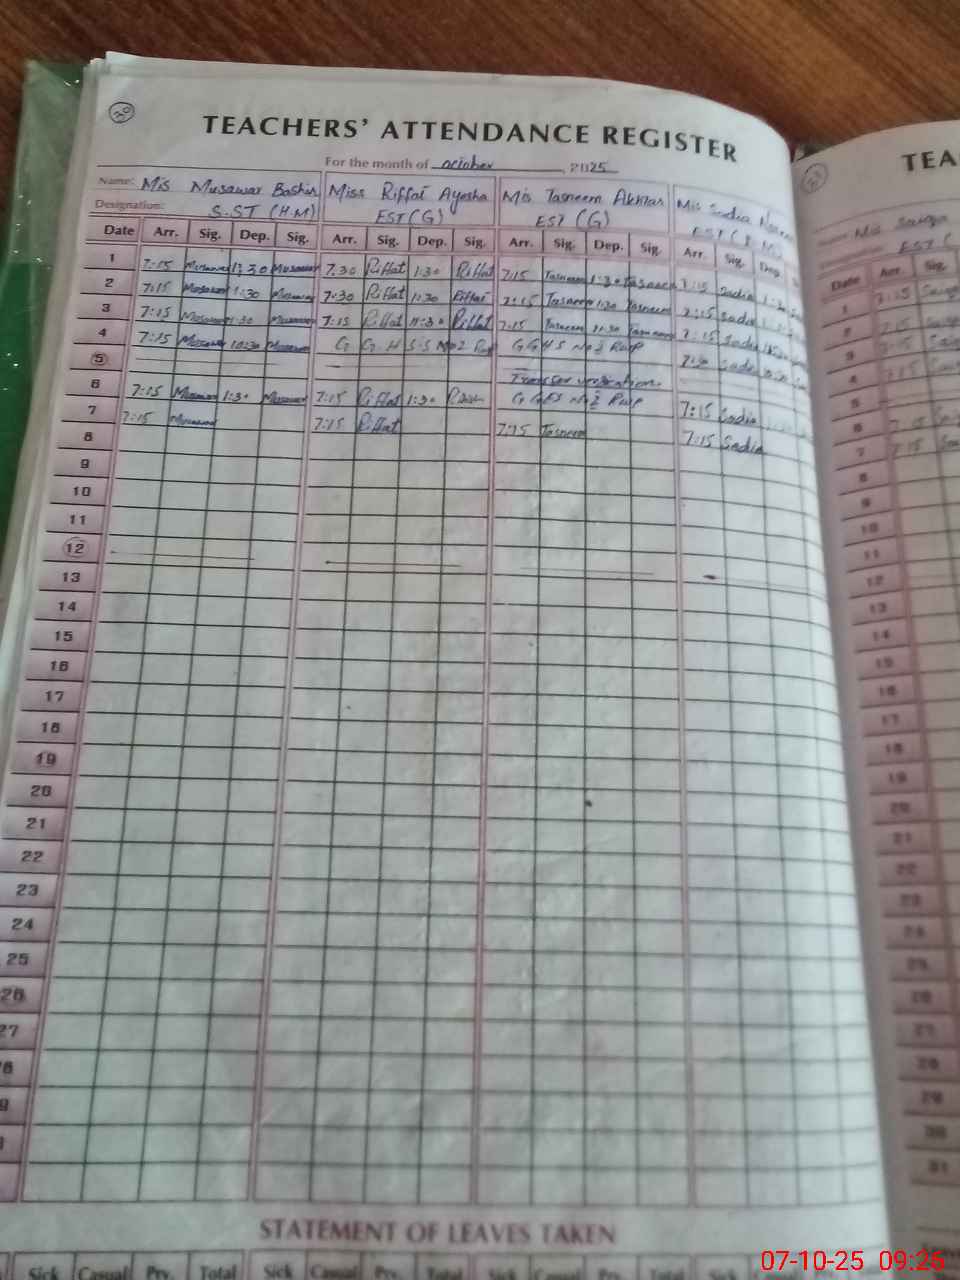 30
TEACHERS' ATTENDANCE REGISTER
For the month of october, 2025
Name: Mis Musawar Bashir Miss Riffat Ayesha Mis Tasneem Akhtar Mis Sadia
Designation: S.ST (H.M) EST (G) EST (G)
Date Arr. Sig. Dep. Sig. Arr. Sig. Dep. Sig. Arr. Sig. Dep. Sig. Arr. Sig. Dep.
1 7:15 Musawar 1:30 Musawar 7:30 Riffat 1:30 Riffat 7:15 Tasneem 1:30 Tasneem 7:15 Sadia
2 7:15 Musawar 1:30 Musawar 7:30 Riffat 11:30 Riffat 7:15 Tasneem 11:30 Tasneem 7:15 Sadia
3 7:15 Musawar 11:30 Musawar 7:15 Riffat 11:30 Riffat 7:15 Tasneem 11:30 Tasneem 7:15 Sadia
4 7:15 Musawar 10:30 Musawar G G H S S No 2 Rwp G G H S No 2 Rwp Sadia
5
Transfer verification
6 7:15 Musawar 1:30 Musawar 7:15 Riffat 1:30 G G E S No 2 Rwp 7:15 Sadia
7 7:15 Musawar 7:15 Riffat 7:15 Tasneem 7:15 Sadia
8
9
10
11
12
13
14
15
16
17
18
19
20
21
22
23
24
25
26
27
STATEMENT OF LEAVES TAKEN
Sick Casual Prv. Total Sick Casual Prv. Total Sick
TEA
Mis Saiqa
EST (
Date Arr. Sig.
1 7:15
2 7:15
3 7:15
4 7:15
5
6 7:15
7 7:15
8
9
10
11
12
13
14
15
16
17
18
19
20
21
22
23
24
25
26
27
28
29
30
31
07-10-25 09:26